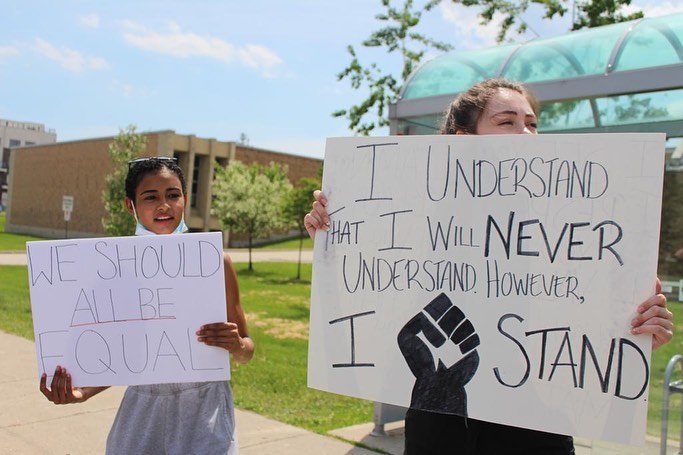 WE SHOULD
ALL BE
EQUAL
I UNDERSTAND
THAT I WILL NEVER
UNDERSTAND. HOWEVER,
I STAND.